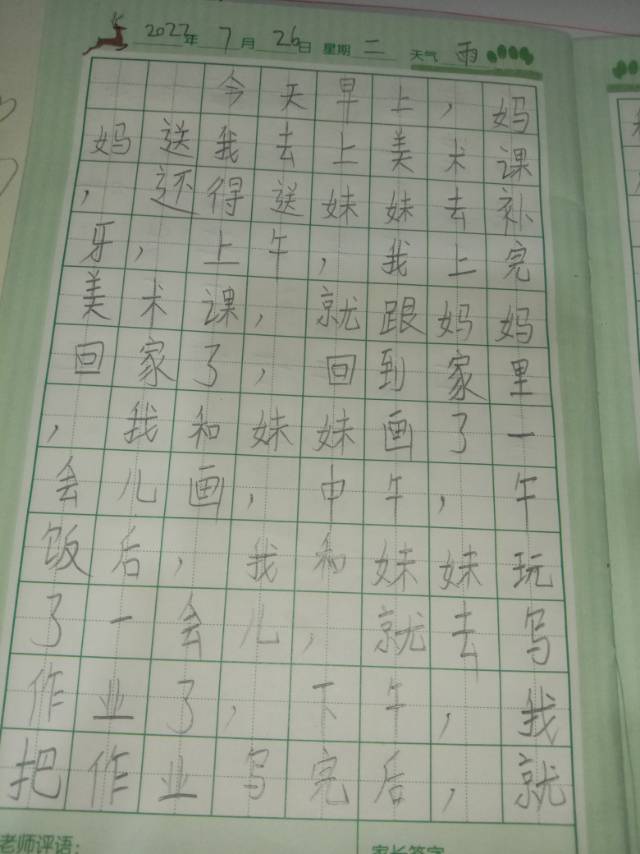 2022年 7月 26日 星期 二 天气 雨
今天早上，妈
妈送我去上美术课
，还得送妹妹去补
牙，上午，我上完
美术课，就跟妈妈
回家了，回到家里
，我和妹妹画了一
会儿画，中午，午
饭后，我和妹妹玩
了一会儿，就去写
作业了，下午，我
把作业写完后，就
老师评语： 家长签字